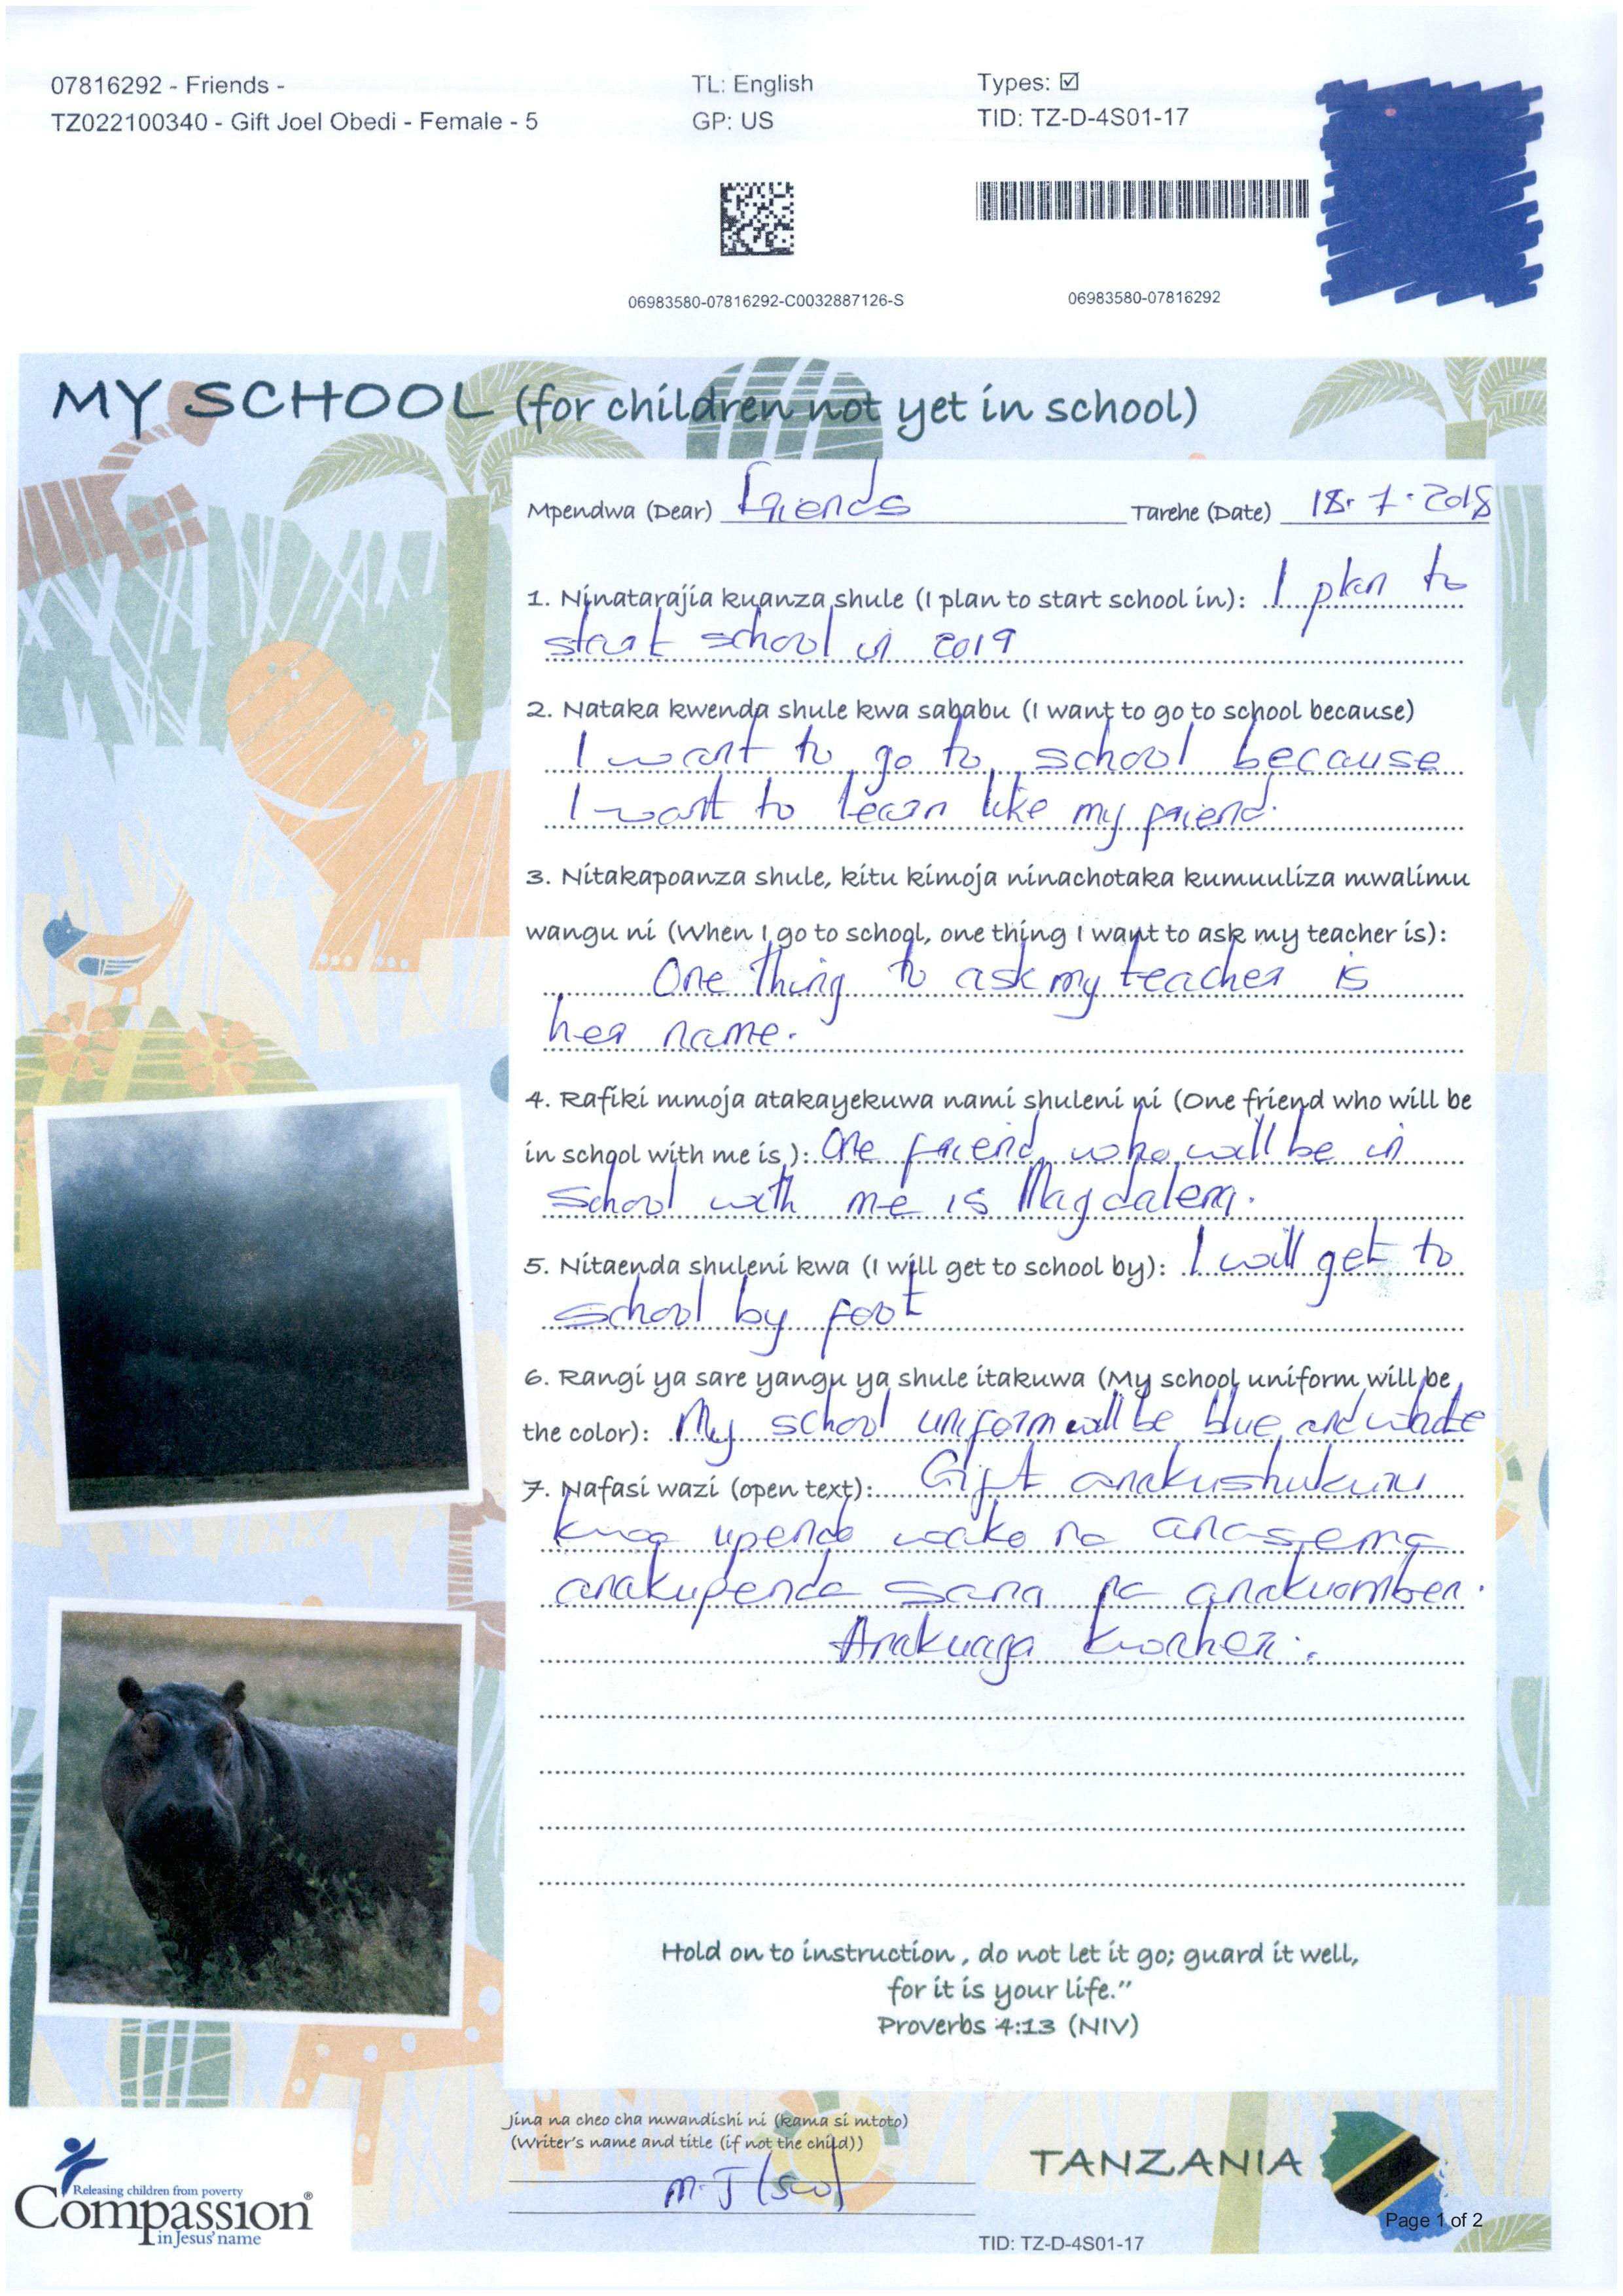 07816292 - Friends -
TZ022100340 - Gift Joel Obedi - Female - 5
TL: English
GP: US
Types: ☑
TID: TZ-D-4S01-17
06983580-07816292-C0032887126-S
06983580-07816292
MY SCHOOL (for children not yet in school)
Mpendwa (Dear) Friends Tarehe (Date) 18.7.2018
1. Ninatarajia kuanza shule (I plan to start school in): I plan to
start school in 2019
2. Nataka kwenda shule kwa sababu (I want to go to school because)
I want to go to school because
I want to learn like my friend.
3. Nitakapoanza shule, kitu kimoja ninachotaka kumuuliza mwalimu
wangu ni (When I go to school, one thing I want to ask my teacher is):
One thing to ask my teacher is
her name.
4. Rafiki mmoja atakayekuwa nami shuleni ni (One friend who will be
in school with me is ): One friend who will be in
school with me is Magdalena.
5. Nitaenda shuleni kwa (I will get to school by): I will get to
school by foot
6. Rangi ya sare yangu ya shule itakuwa (My school uniform will be
the color): My school uniform will be blue and white
7. Nafasi wazi (open text): Gift anakushukuru
kwa upendo wako na anasema
anakupenda sana na anakuombea.
Anakuaga kwaheri.
Hold on to instruction , do not let it go; guard it well,
for it is your life.”
Proverbs 4:13 (NIV)
Jina na cheo cha mwandishi ni (kama si mtoto)
(Writer's name and title (if not the child))
M.J (SW)
Releasing children from poverty
Compassion®
in Jesus' name
TANZANIA
Page 1 of 2
TID: TZ-D-4S01-17